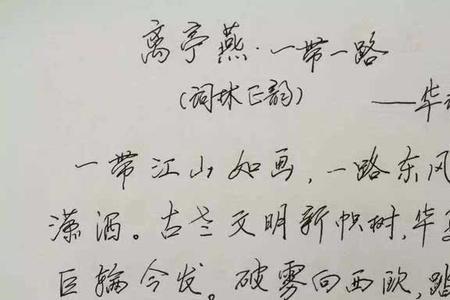 离亭燕·一带一路
（词林正韵）
——华
一带江山如画，一路东风
潇洒。古老文明新帜树，华夏
巨轮今发。破雾向西欧，踏